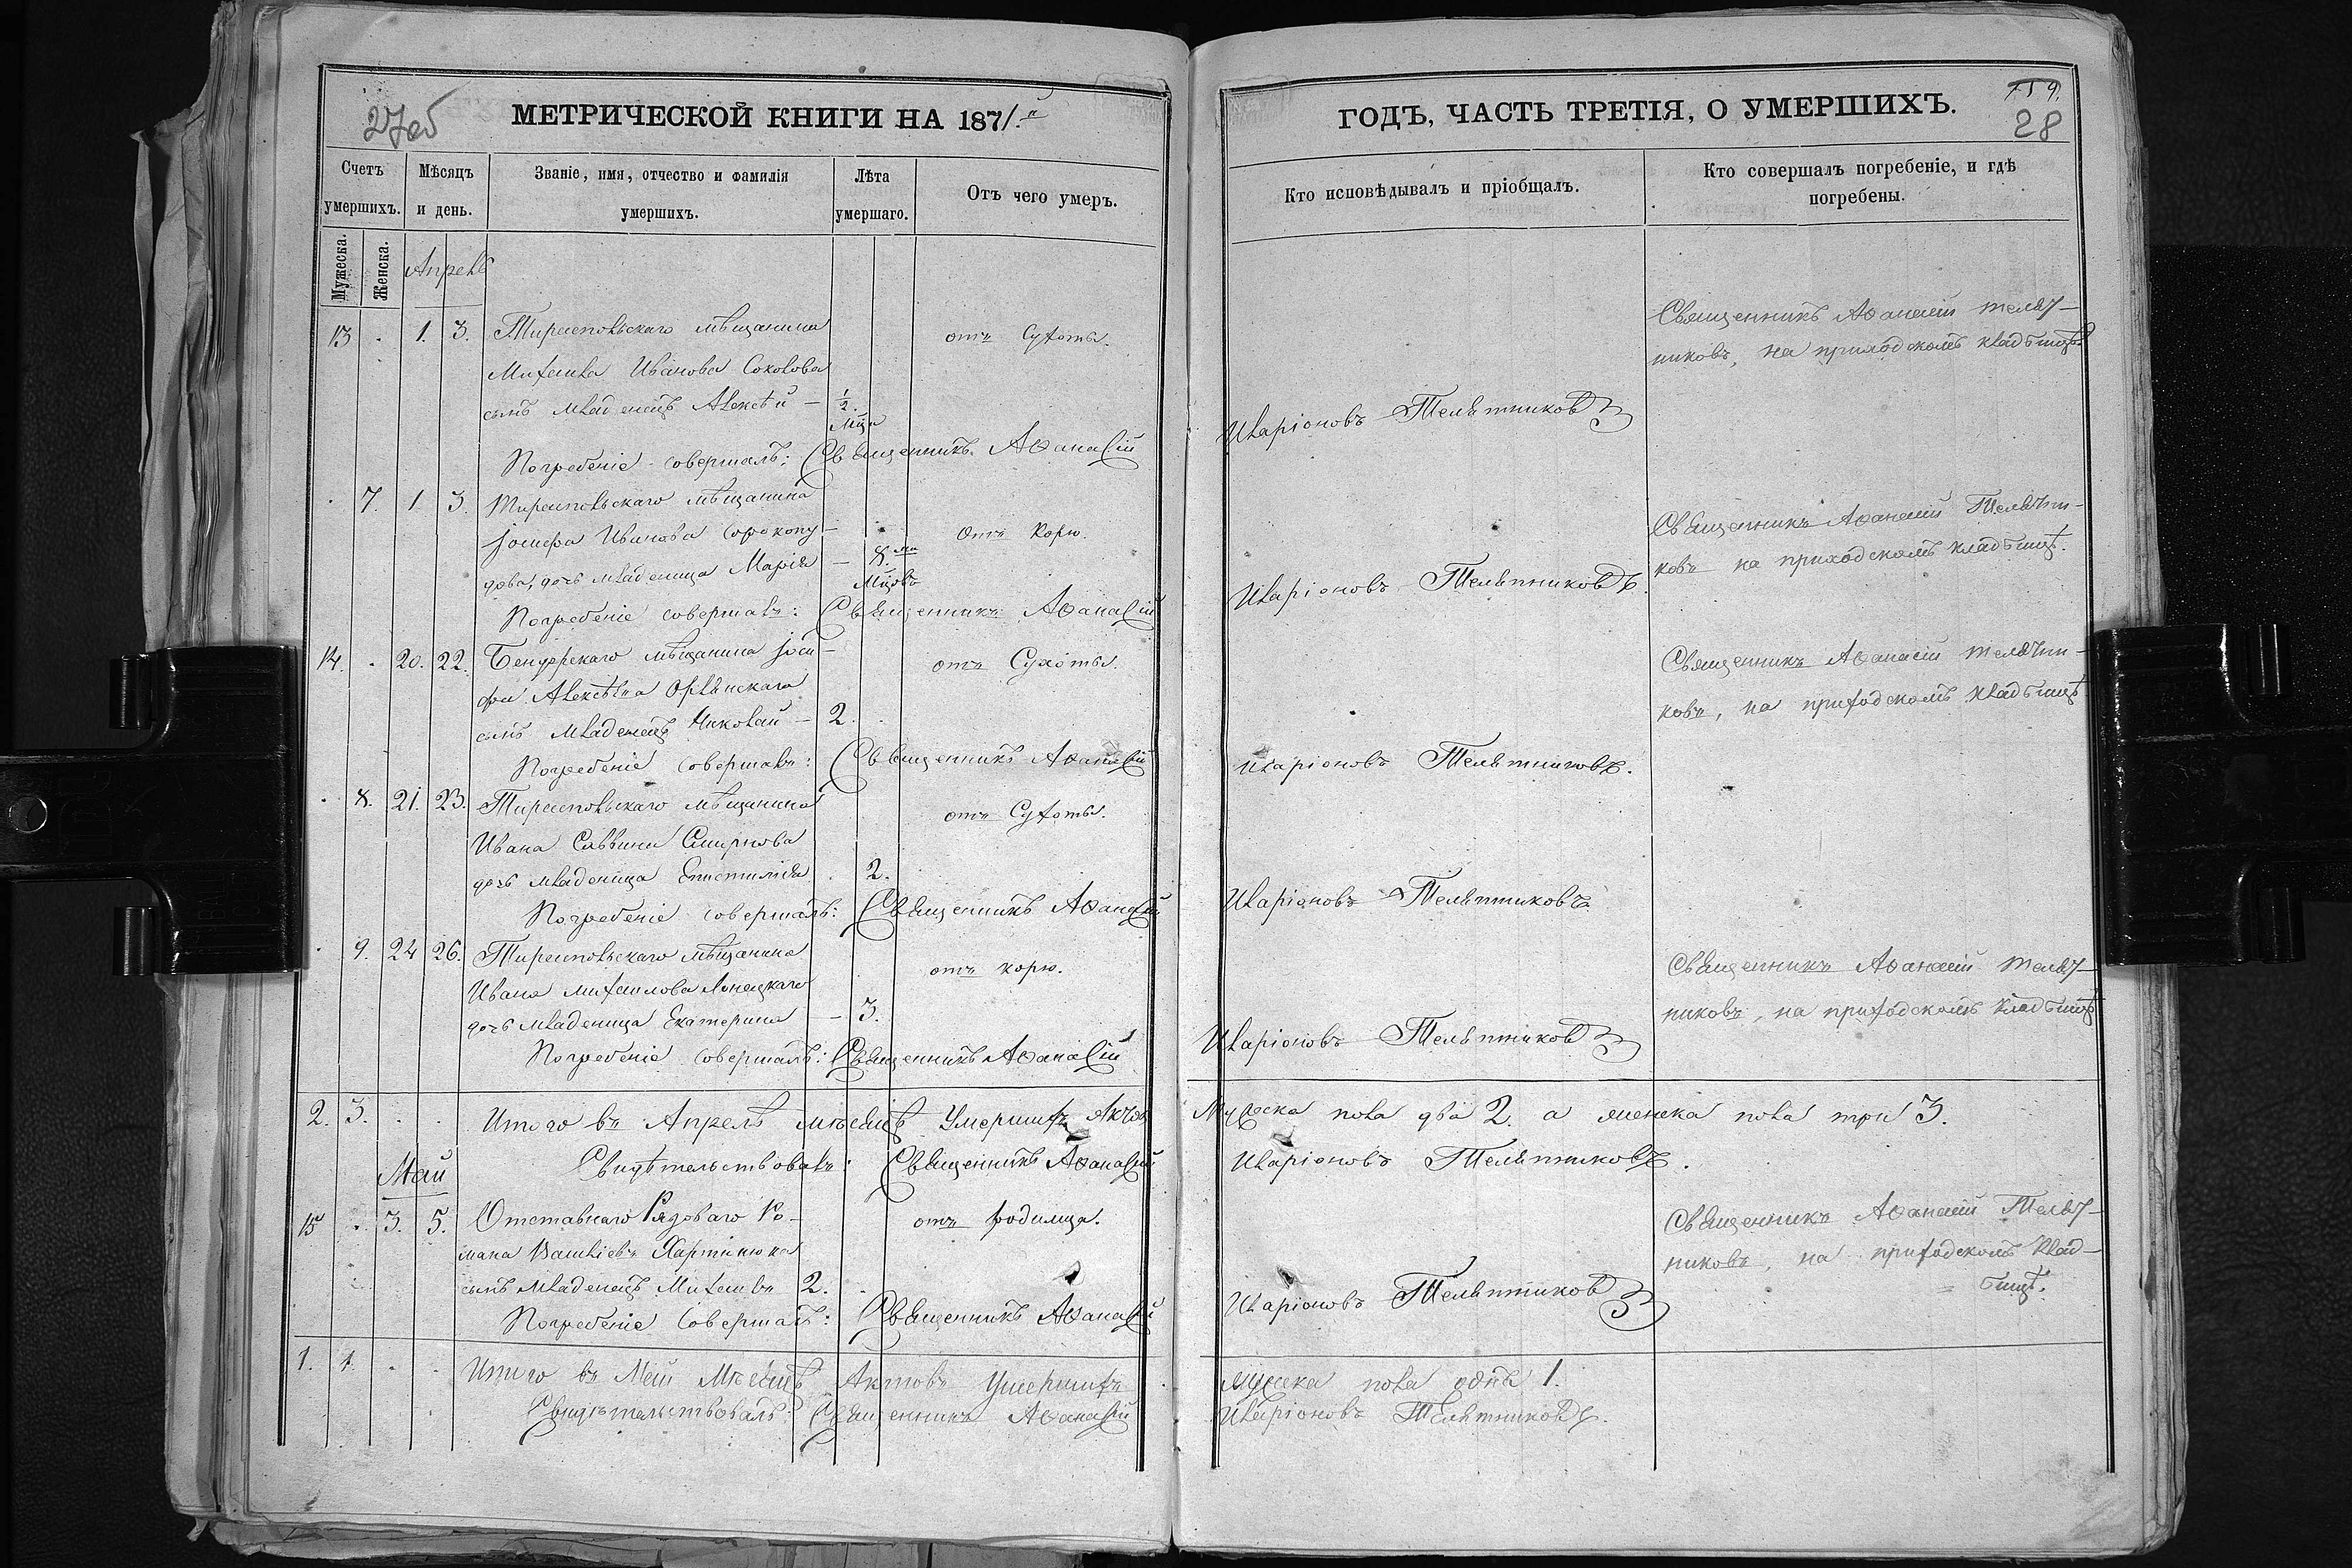 27об
МЕТРИЧЕСКОЙ КНИГИ НА 1871.й
Счетъ умершихъ.
Мѣсяцъ и день.
Званіе, имя, отчество и фамилія умершихъ.
Лѣта умершаго.
Отъ чего умеръ.
Мужеска.
Женска.
Апрель
13 . 1. 3. Тираспольскаго мѣщанина отъ Сухоты.
Михаила Иванова Соколова
сынъ младенецъ Алексѣй — ½
Мца
Погребеніе совершалъ: Священникъ Аѳанасій
. 7. 1 3. Тираспольскаго мѣщанина
Іосифа Иванова Сорокопу- отъ Корю.
дова, дочь младеница Марія — 8.ми
Мцовъ
Погребеніе совершалъ: Священникъ Аѳанасій
14. . 20. 22. Бендерскаго мѣщанина Іоси- отъ Сухоты.
фа Алексѣева Орлинскаго
сынъ младенецъ Николай — 2.
Погребеніе совершалъ: Священникъ Аѳанасій
. 8. 21. 23. Тираспольскаго мѣщанина отъ Сухоты.
Ивана Саввина Смирнова
дочь младеница Епистилія . 2.
Погребеніе совершалъ: Священникъ Аѳанасій
. 9. 24 26. Тираспольскаго мѣщанина отъ корю.
Ивана Михайлова Лонецкаго
дочь младеница Екатерина — 3.
Погребеніе совершалъ: Священникъ Аѳанасій
2. 3. . . Итого въ Апрелѣ мѣсяцѣ Умершихъ Актовъ
Свидѣтельствовалъ: Священникъ Аѳанасій
Май
15 . 3. 5. Отставнаго Рядоваго Ро- отъ родимца.
мана Хартинюка
сынъ младенецъ Михаилъ 2.
Погребеніе Совершалъ: Священникъ Аѳанасій
1. 1. . . Итого въ Маѣ Мѣсяцѣ Актовъ Умершихъ
Свидѣтельствовалъ: Священникъ Аѳанасій
ГОДЪ, ЧАСТЬ ТРЕТІЯ, О УМЕРШИХЪ.
159.
28
Кто исповѣдывалъ и пріобщалъ.
Кто совершалъ погребеніе, и гдѣ
погребены.
Священникъ Аѳанасій Телят-
никовъ, на приходскомъ кладбищѣ
Иларіоновъ Телятниковъ
Священникъ Аѳанасій Телятни-
ковъ на приходскомъ кладбищѣ.
Иларіоновъ Телятниковъ.
Священникъ Аѳанасій Телятни-
ковъ, на приходскомъ кладбищѣ
Иларіоновъ Телятниковъ.
Иларіоновъ Телятниковъ.
Священникъ Аѳанасій Телят-
никовъ, на приходскомъ кладбищѣ
Иларіоновъ Телятниковъ
Мужеска пола два 2. а женска пола три 3.
Иларіоновъ Телятниковъ.
Священникъ Аѳанасій Телят-
никовъ, на приходскомъ клад-
бищѣ.
Иларіоновъ Телятниковъ
мужска пола одна 1.
Иларіоновъ Телятниковъ.